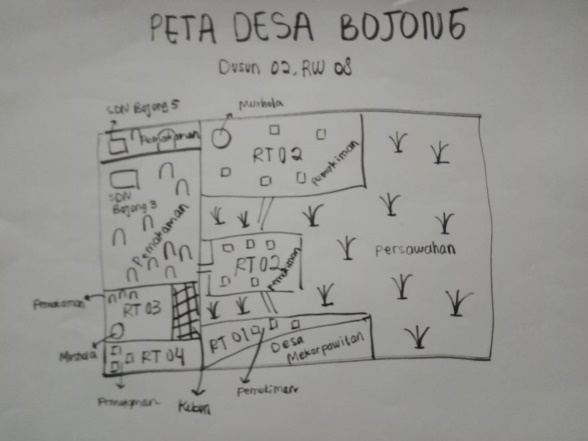 PETA DESA BOJONG
Dusun 02, RW 08
SDN Bojong 5
Mushola
Pemakaman
RT 02
Pemukiman
SDN
Bojong 3
Pemakaman
RT 02
Pemukiman
Persawahan
Pemakaman
RT 03
RT 01
Desa
Mekarpawitan
Mushola
RT 04
Pemukiman
Kebun
Pemukiman